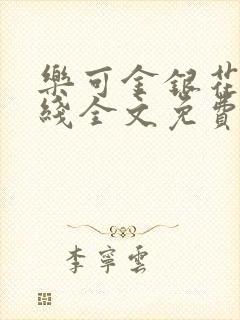 樂可金銀花
綫全文免費
李寧雲